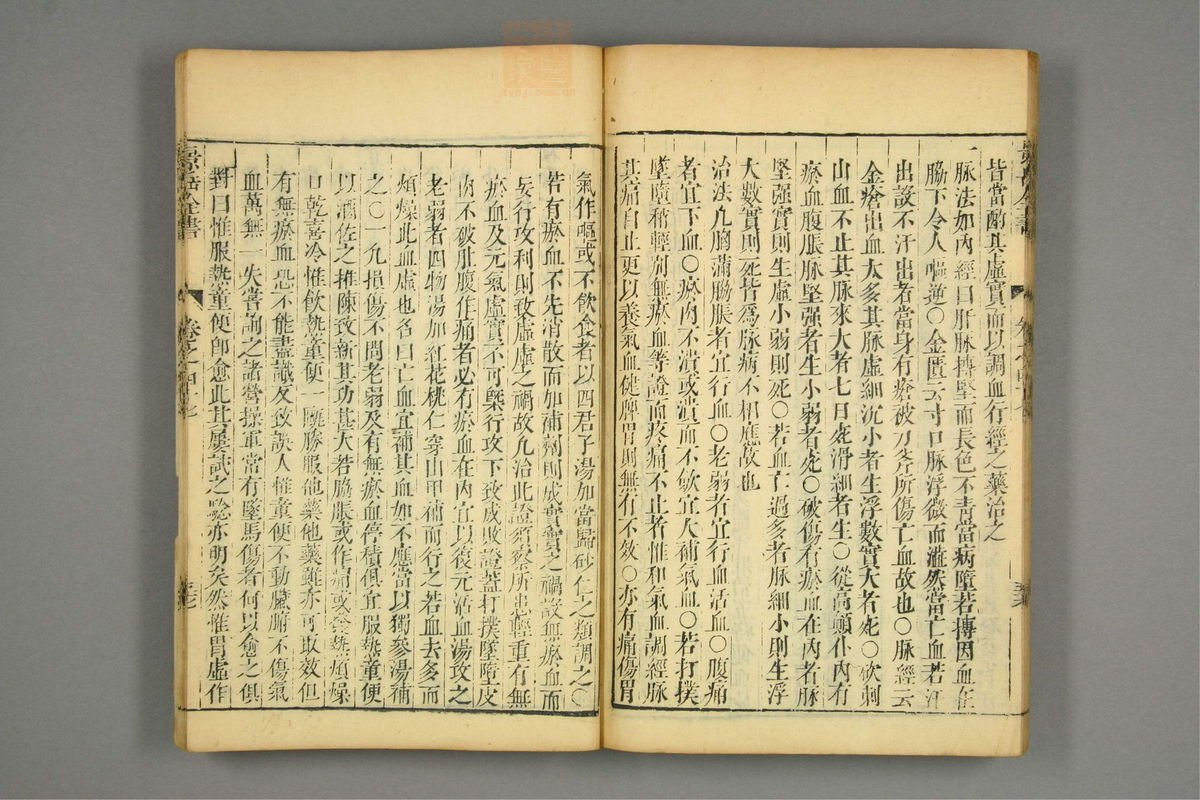 皆當酌其虛實而以調血行經之藥治之
一脉法如內經曰肝脉搏堅而長色不青當病墮若搏因血在
脇下令人嘔逆〇金匱云寸口脉浮微而濇然當亡血若汗
出設不汗出者當身有瘡被刀斧所傷亡血故也〇脉經云
金瘡出血太多其脉虛細沉小者生浮數實大者死〇砍刺
出血不止其脉來大者七日死滑細者生〇從高顛仆內有
瘀血腹脹脉堅强者生小弱者死〇破傷有瘀血在內者脉
堅强實則生虛小弱則死〇若血亡過多者脉細小則生浮
大數實則死皆爲脉病不相應故也
治法凡胸滿脇脹者宜行血〇老弱者宜行血活血〇腹痛
者宜下血〇瘀肉不潰或潰而不歛宜大補氣血〇若打撲
墜墮稍輕別無瘀血等證而疼痛不止者惟和氣血調經脉
其痛自止更以養氣血健脾胃則無有不效〇亦有痛傷胃
氣作嘔或不飲食者以四君子湯加當歸砂仁之類調之〇
若有瘀血不先消散而加補劑則成實實之禍設無瘀血而
妄行攻利則致虛虛之禍故凡治此證須察所患輕重有無
瘀血及元氣虛實不可槩行攻下致成敗證蓋打撲墜墮皮
肉不破肚腹作痛者必有瘀血在內宜以復元活血湯攻之
老弱者四物湯加紅花桃仁穿山甲補而行之若血去多而
煩燥此血虛也名曰亡血宜補其血如不應當以獨參湯補
之〇一凡損傷不問老弱及有無瘀血停積俱宜服熱童便
以酒佐之推陳致新其功甚大若脇脹或作痛或發熱煩燥
口乾喜冷惟飲熱童便一甌勝服他藥他藥雖亦可取效但
有無瘀血恐不能盡識反致誤人惟童便不動臟腑不傷氣
血萬無一失嘗詢之諸營操軍常有墜馬傷者何以愈之俱
對曰惟服熱童便卽愈此其屢試之驗亦明矣然惟胃虛作
景岳全書
卷之四十七